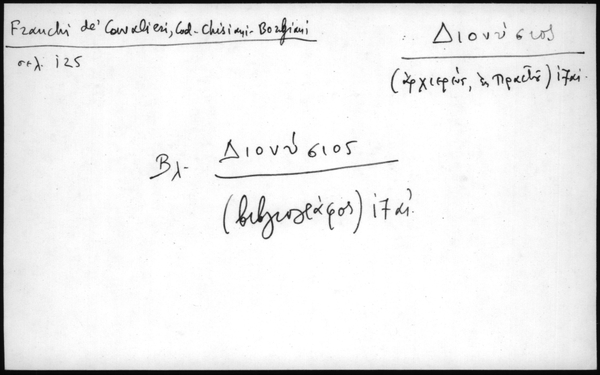 Franchi de' Cavalieri, Cod. Chisiani-Borgiani
σελ. 125
Διονύσιος
(ἀρχιερεύς, ἐκ ) 17 αἰ.
Βλ. Διονύσιος
(βιβλιογράφος) 17 αἰ.